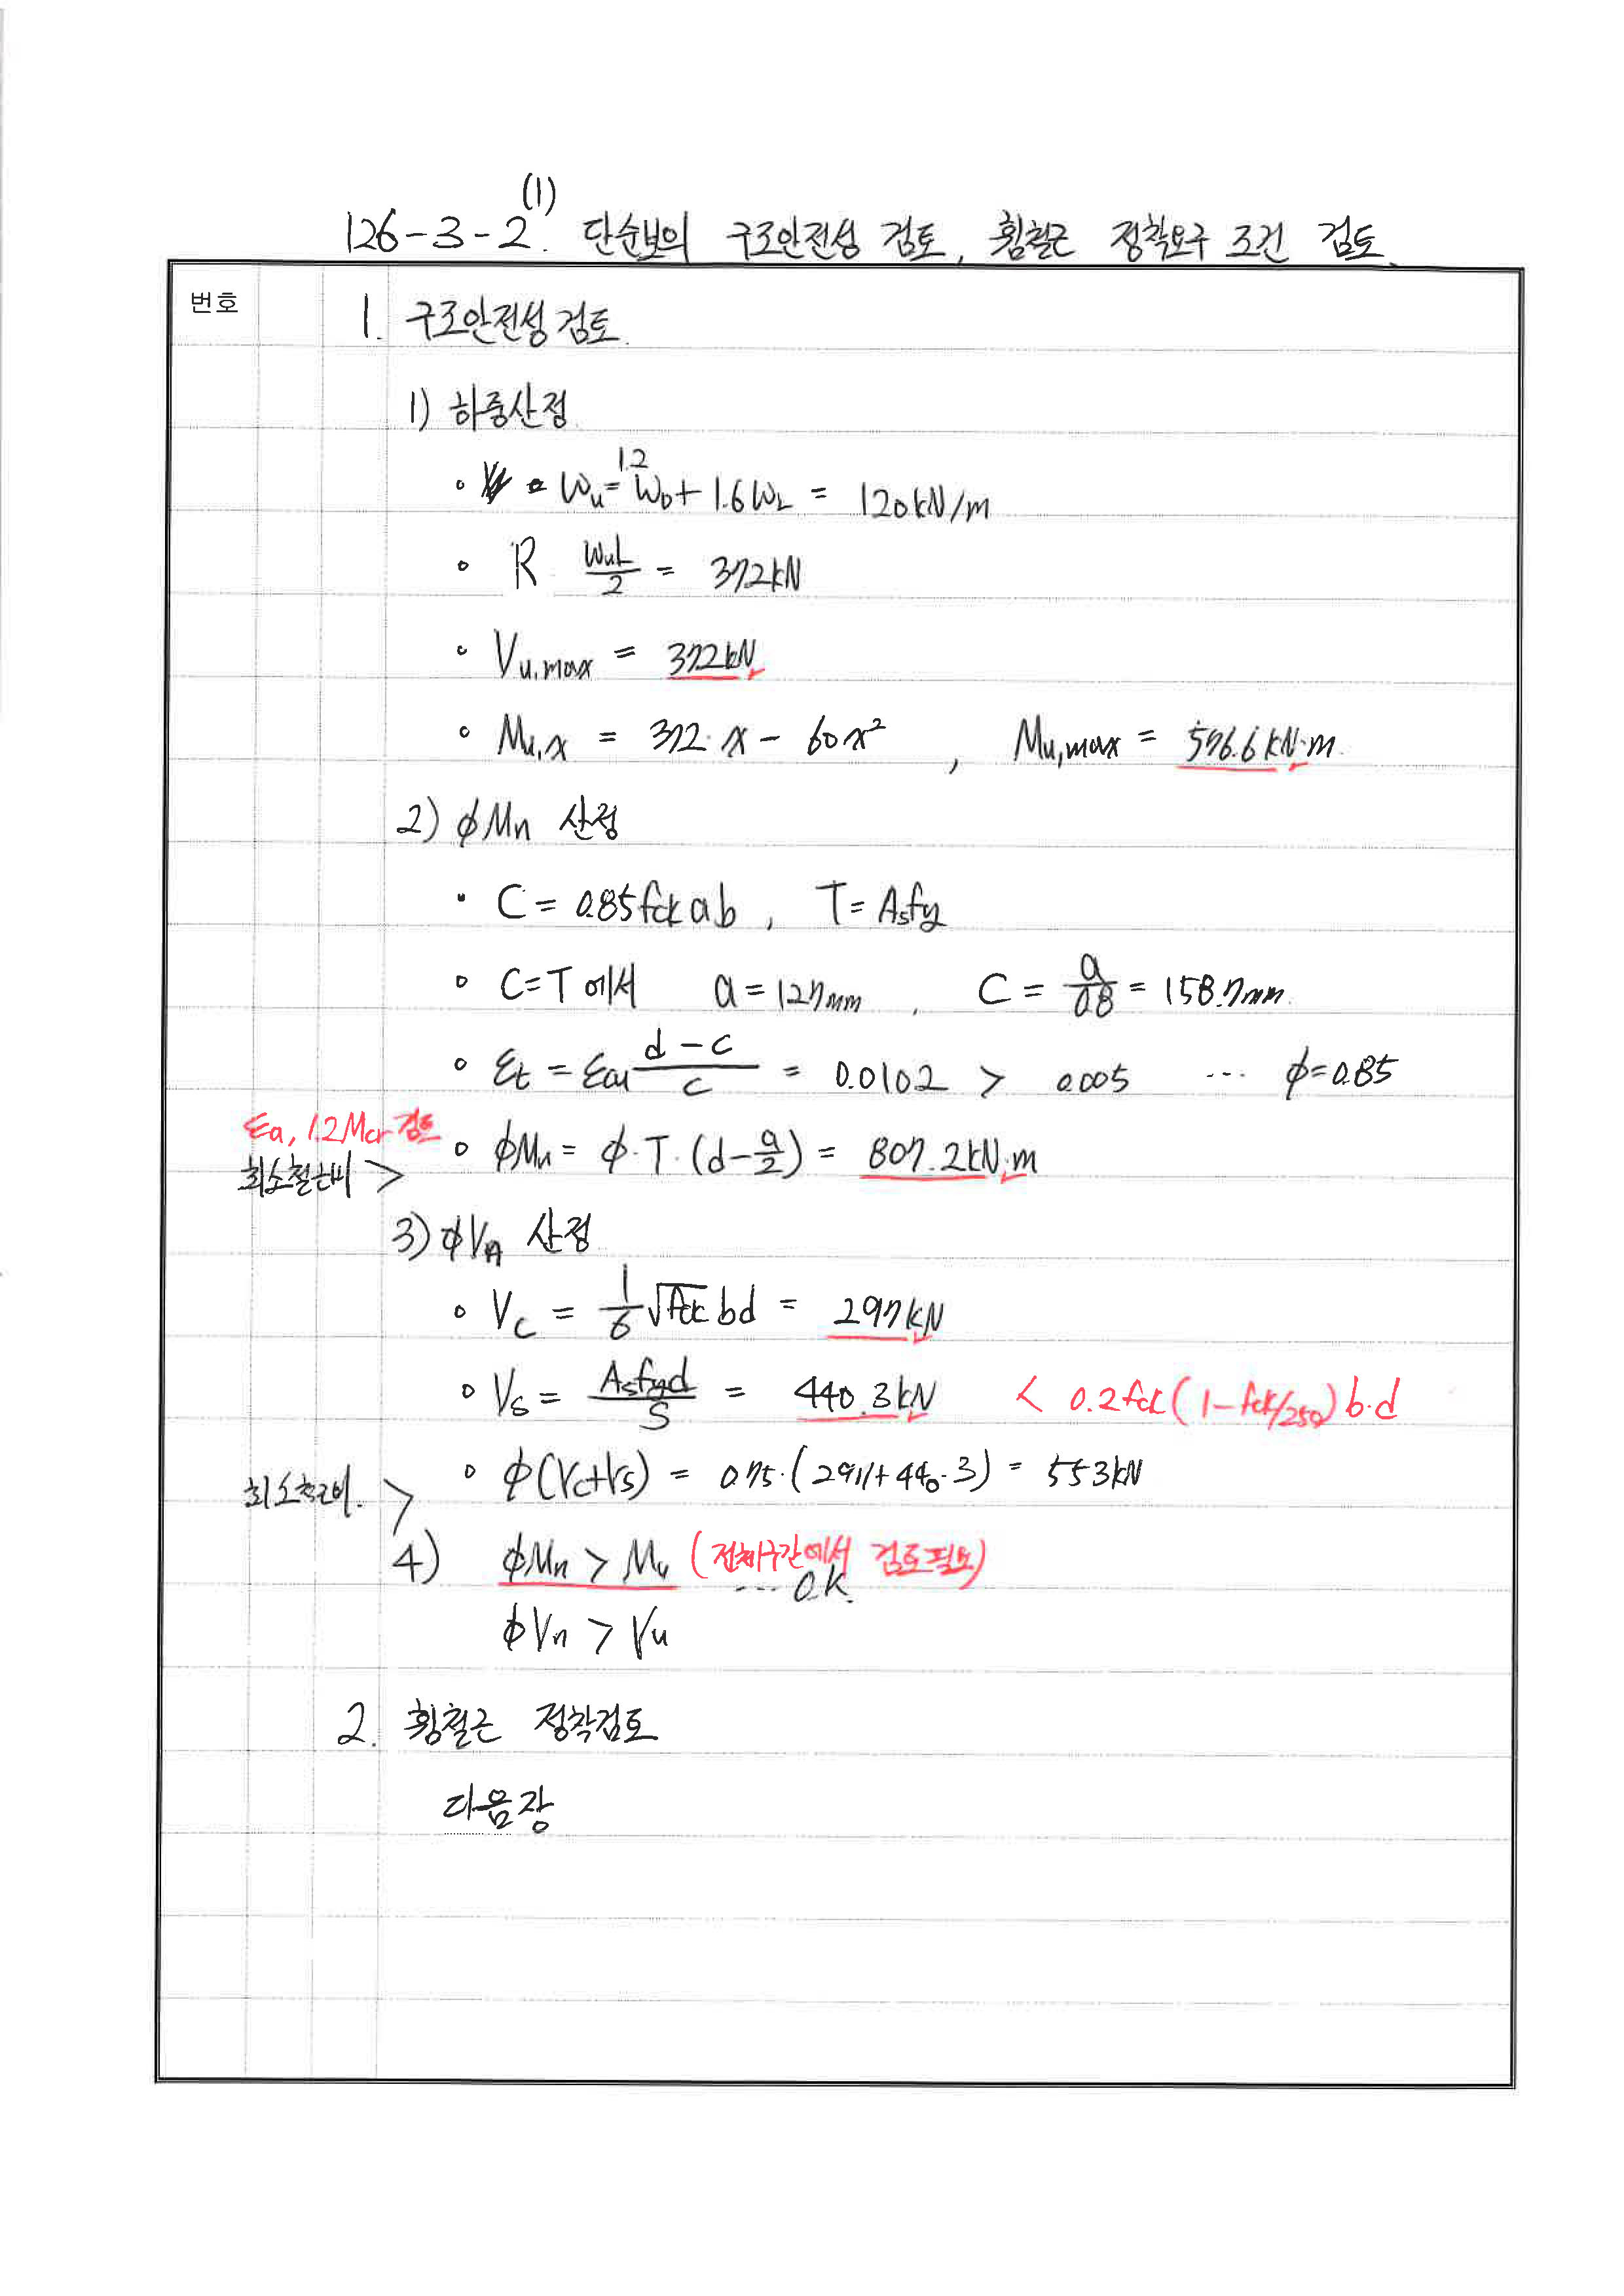 126-3-2.(1) 단순보의 구조안전성 검토, 휨철근 정착요구 조건 검토.
번호
1. 구조안전성 검토.
1) 하중산정
• Wu = 1.2 WD + 1.6 WL = 120kN/m
• R WuL/2 = 372kN
• Vu,max = 372kN
• Mu,x = 372·x - 60x² , Mu,max = 576.6kN·m
2) ϕMn 산정
• C = 0.85fck ab , T = Asfy
• C=T 에서 a = 127mm , C = a/0.8 = 158.7mm.
• εt = εcu (d-c)/c = 0.0102 > 0.005 ... ϕ=0.85
εa, 1.2Mcr 검토
• ϕMn = ϕ·T·(d-a/2) = 807.2kN·m
최소철근비 >
3) ϕVn 산정
• Vc = 1/6 √fck bd = 297kN
• Vs = Asfyd/S = 440.3kN < 0.2fck(1-fck/250)b·d
• ϕ(Vc+Vs) = 0.75·(297+440.3) = 553kN
최소철근비. >
4) ϕMn > Mu (전체구간에서 검토필요)
... O.K.
ϕVn > Vu
2. 휨철근 정착검토
다음장